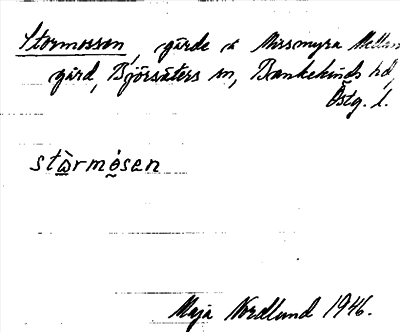 Stormossen, gärde å Missmyra Mellan
gård, Björsäters sn, Bankekinds hd,
Östg. l.
stὼrmǫ̀sen
Maja Nordlund 1946.